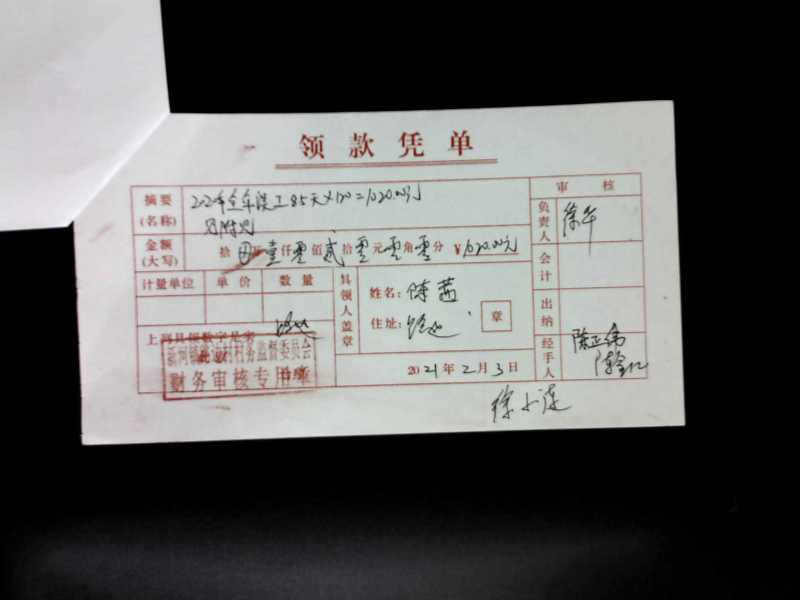 领款凭单
摘要 (名称) 全年误工8.5天×120=1020.00元
审核
负责人 徐午
金额 (大写) 拾 万壹仟零佰贰拾零元零角零分 ¥1020.00元
计量单位 单价 数量
具领人盖章 姓名: 陈茜
住址: 章
会计
出纳
上列具领数字足实
村务监督委员会
财务审核专用章
2021年2月3日
经手人 陈正伟
徐小萍